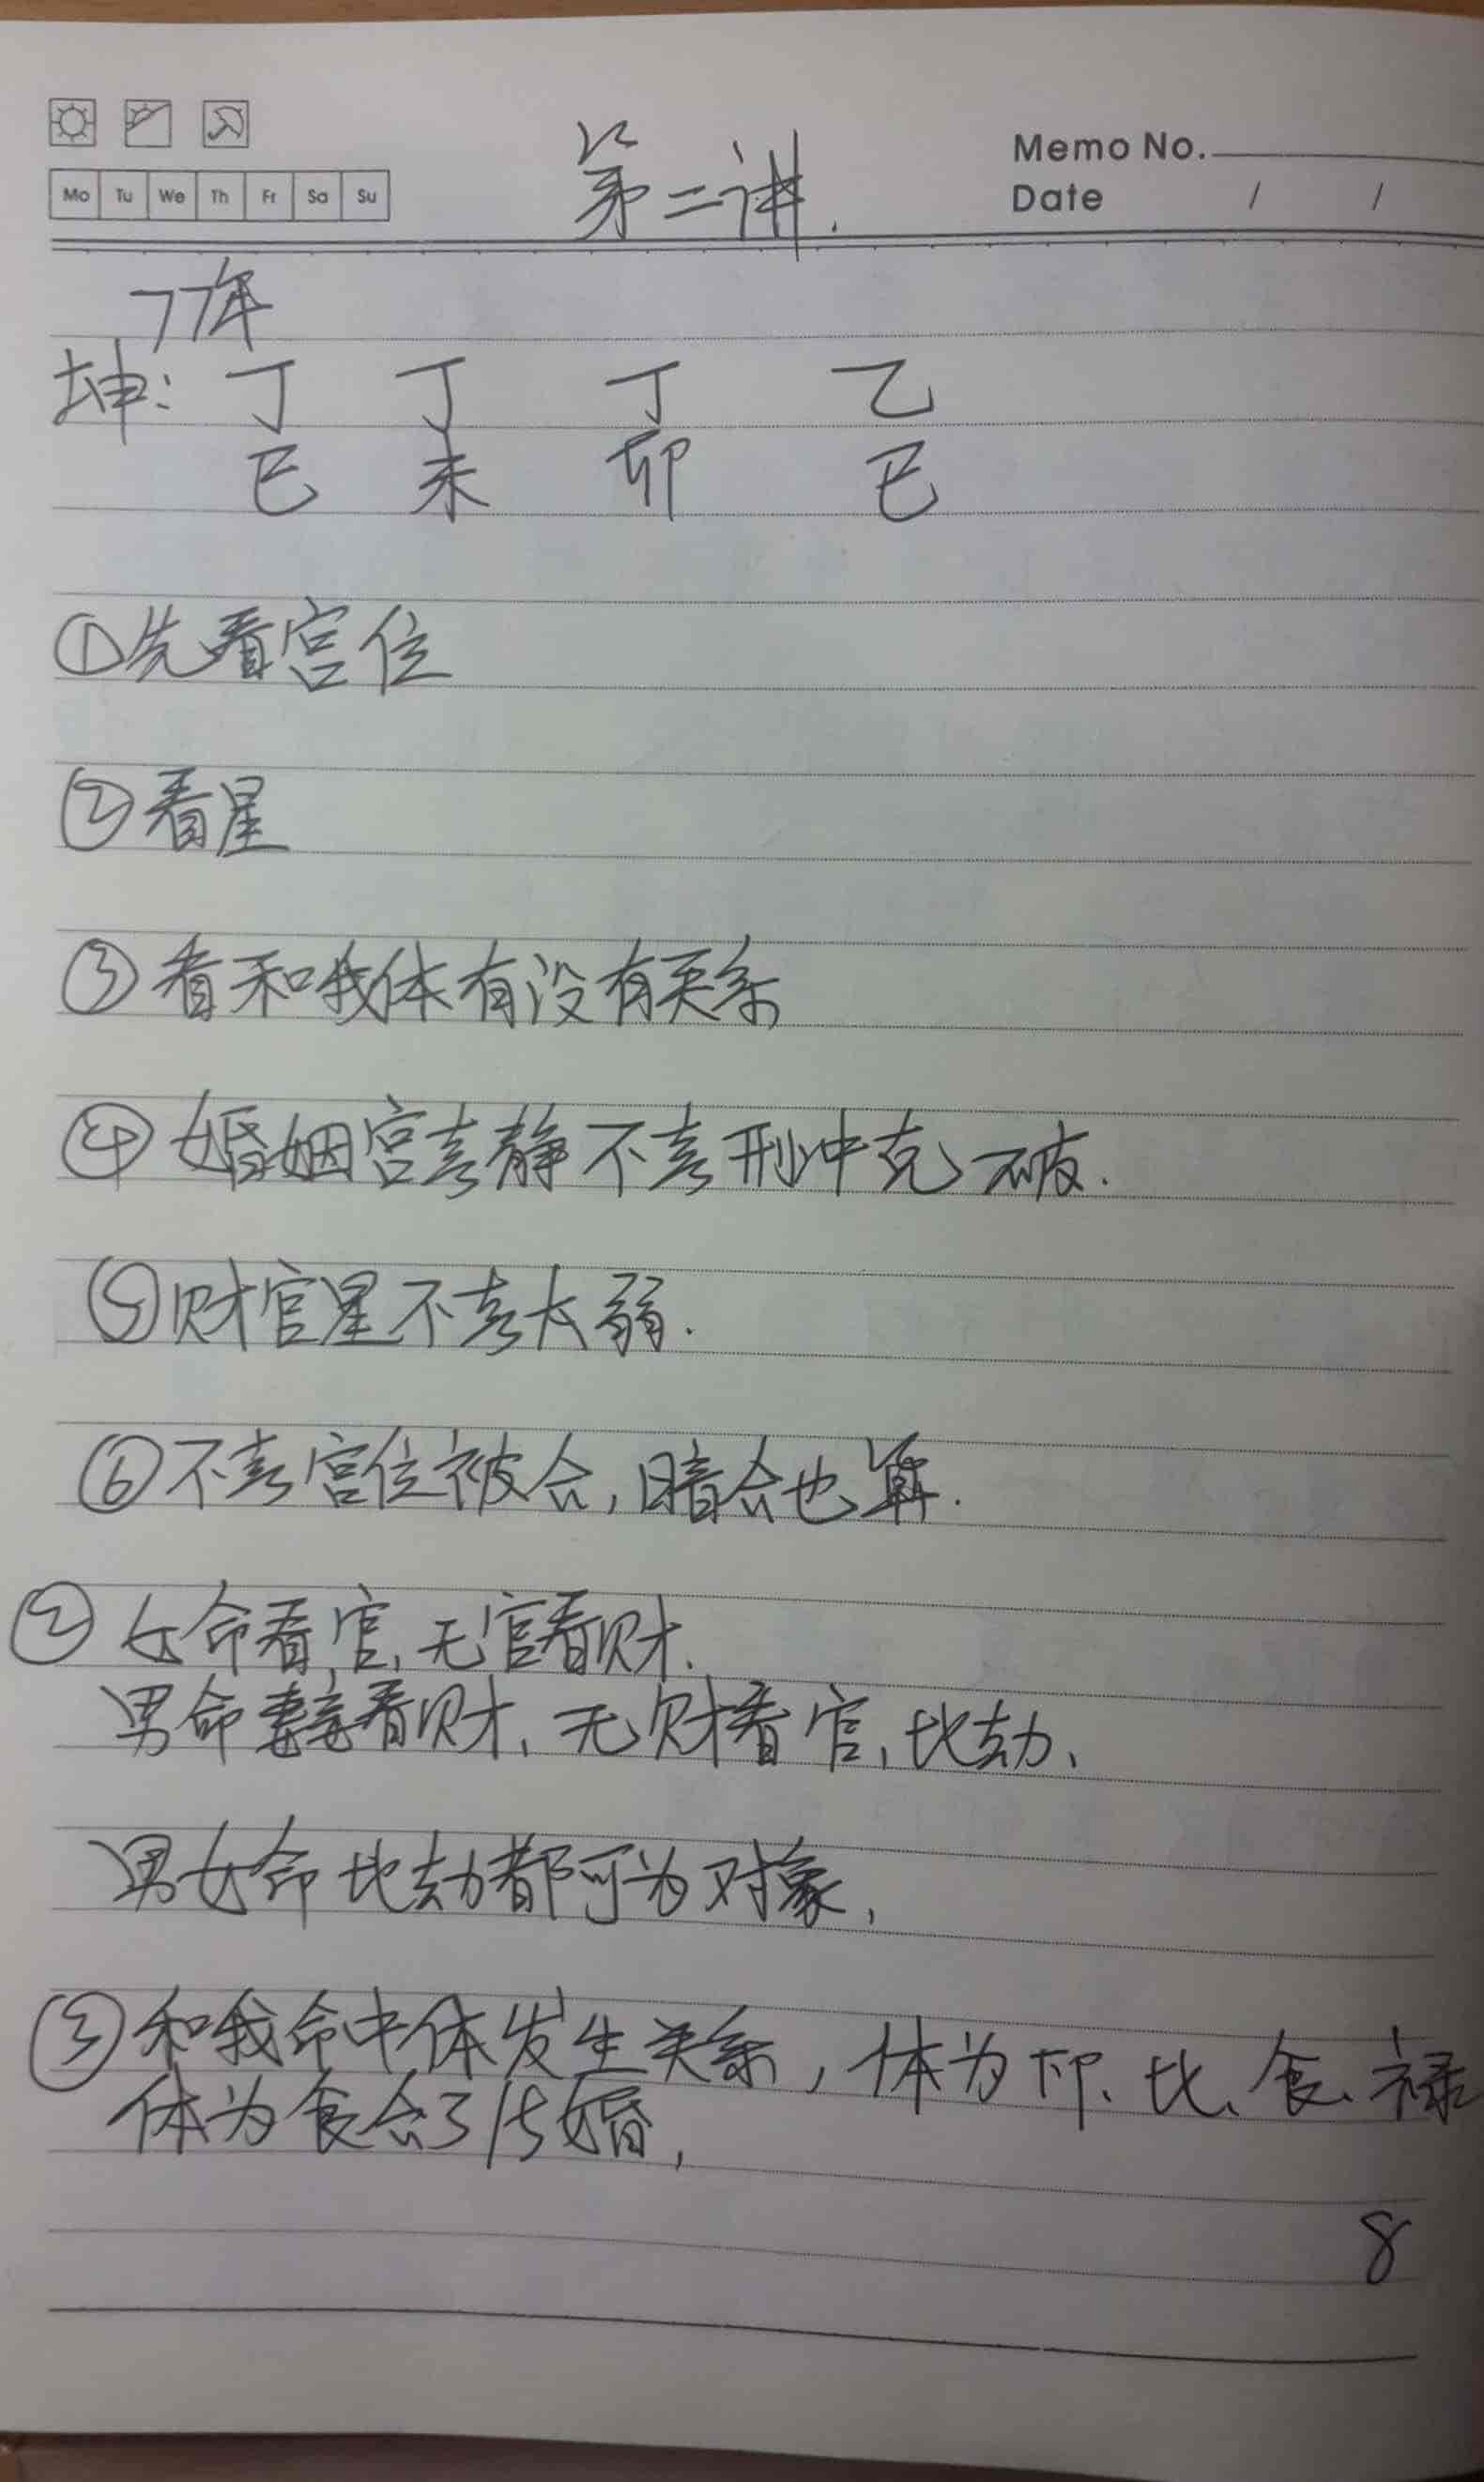 第二讲.
Memo No.
Mo Tu We Th Fr Sa Su
Date / /
77年
坤: 丁 丁 丁 乙
巳 未 卯 巳
①先看宫位
②看星
③看和我体有没有关系
④婚姻宫喜静不喜刑冲克破.
⑤财官星不喜太弱.
⑥不喜宫位被合,暗合也算.
②女命看官,无官看财.
男命看财,无财看官,比劫、
男女命比劫都可为对象,
③和我命中体发生关系,体为印、比、食、禄
体为食合了结婚,
8